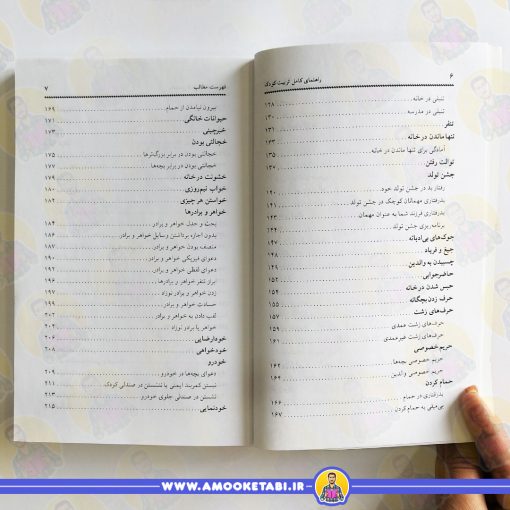 ۶ راهنمای کامل تربیت کودک
تنبلی در خانه ۱۲۸
تنبلی در مدرسه ۱۳۰
تنفر ۱۳۱
تنها ماندن در خانه ۱۳۳
آمادگی برای تنها ماندن در خانه ۱۳۵
توالت رفتن ۱۳۷
جشن تولد
رفتار بد در جشن تولد خود
بدرفتاری مهمانان کوچک در جشن تولد
بدرفتاری فرزند شما به عنوان مهمان
برنامه‌ریزی جشن تولد
جوک‌های بی‌ادبانه
جیغ و فریاد
چسبیدن به والدین
حاضرجوابی ۱۵۲
حبس شدن در خانه ۱۵۴
حرف زدن بچگانه ۱۵۵
حرف‌های زشت ۱۵۷
حرف‌های زشت عمدی
حرف‌های زشت غیرعمدی
حریم خصوصی
حریم خصوصی بچه‌ها ۱۶۲
حریم خصوصی والدین ۱۶۴
حمام کردن
بدرفتاری در حمام ۱۶۶
بی‌میلی به حمام کردن ۱۶۷
فهرست مطالب ۷
بیرون نیامدن از حمام ۱۶۹
حیوانات خانگی ۱۷۱
خبرچینی ۱۷۳
خجالتی بودن
خجالتی بودن در برابر بزرگ‌ترها ۱۷۵
خجالتی بودن در برابر بچه‌ها ۱۷۷
خشونت در خانه ۱۷۹
خواب نیم‌روزی ۱۸۰
خواستن هر چیزی ۱۸۲
خواهر و برادرها
بحث و جدل خواهر و برادر ۱۸۴
بدون اجازه برداشتن وسایل خواهر و برادر ۱۸۶
منصف بودن خواهر و برادر ۱۸۷
دعوای فیزیکی خواهر و برادر
دعوای لفظی خواهر و برادر
ابراز تنفر خواهرها و برادرها
زدن خواهر و برادر نوزاد
حسادت خواهر و برادر
لقب دادن به خواهر و برادر
خواهر یا برادر نوزاد ۲۰۴
خودارضایی ۲۰۶
خودخواهی ۲۰۸
خودرو
دعوای بچه‌ها در خودرو ۲۰۹
نبستن کمربند ایمنی یا ننشستن در صندلی کودک ۲۱۱
نشستن در صندلی جلوی خودرو ۲۱۳
خودنمایی ۲۱۵
WWW.AMOOKETABI.IR